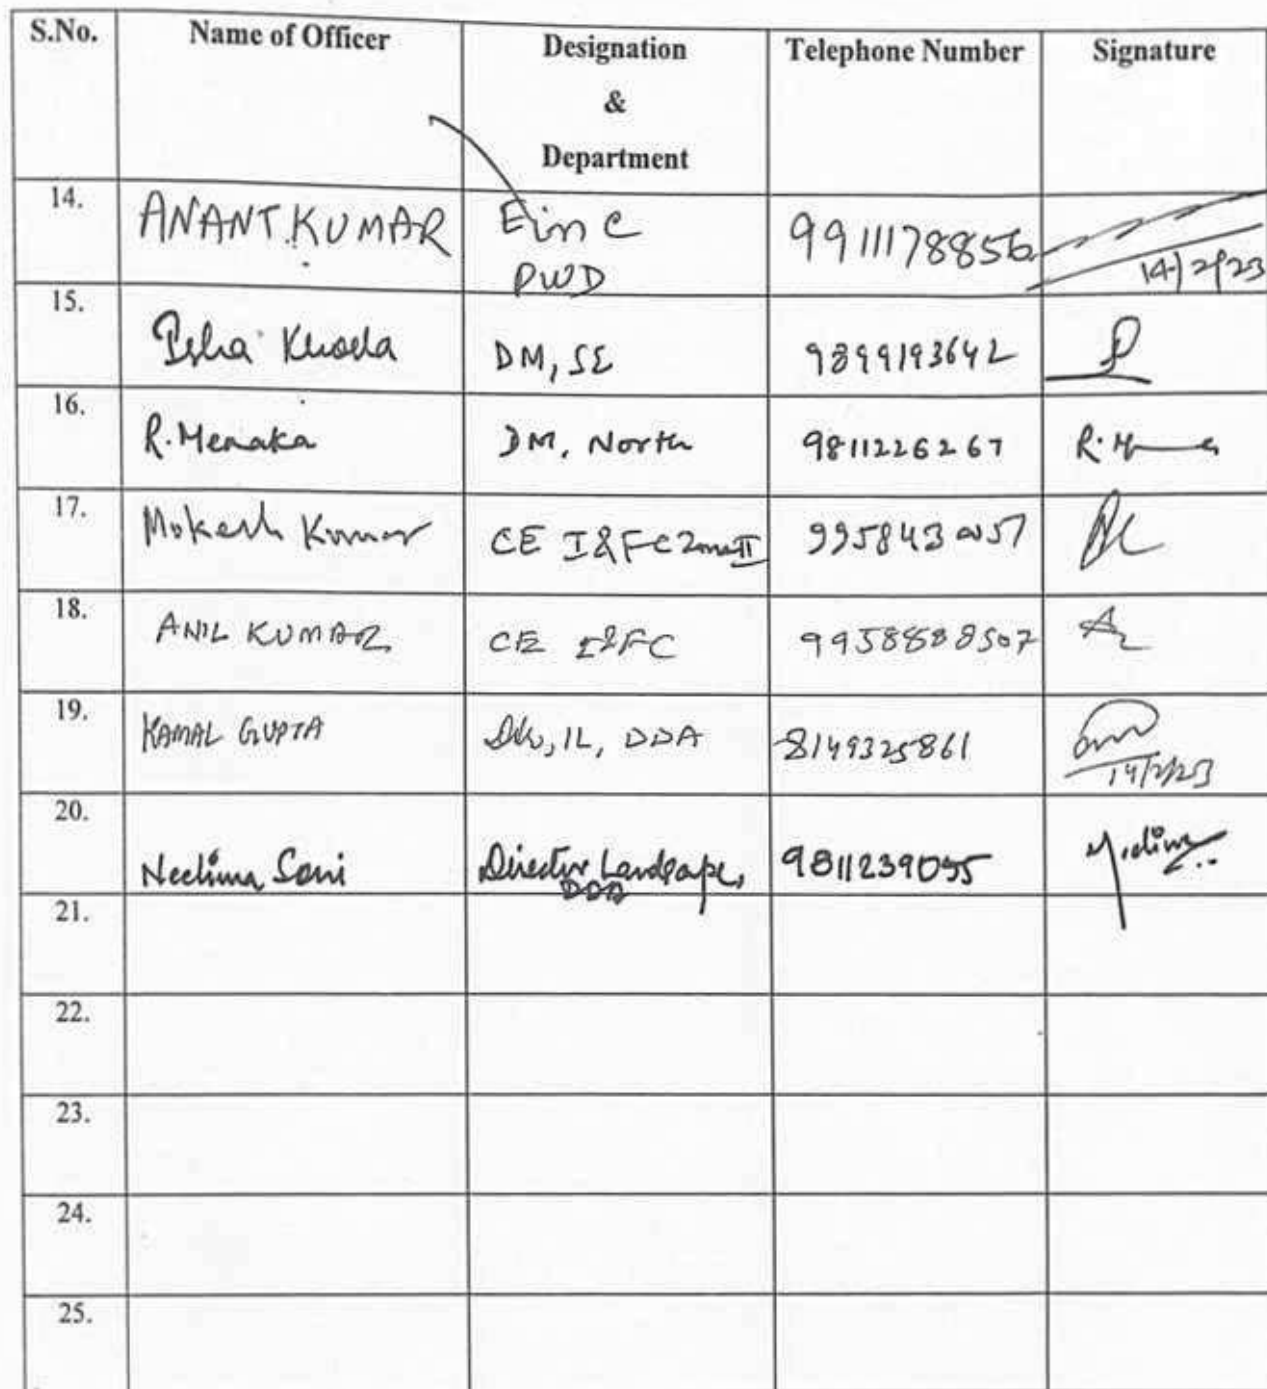 S.No. Name of Officer Designation Telephone Number Signature
&
Department
14. ANANT KUMAR E in C 9911178856
PWD 14/2/23
15. Isha Khosla DM, SE 9899193642
16. R. Menaka DM, North 9811226267
17. Mukesh Kumar CE I&FC Zone II
18. ANIL KUMAR CE I&FC 9958888507
19. KAMAL GUPTA IL, DDA 8149325861
14/2/23
20. Neelima Soni Director Landscape, 9811239095
DDA
21.
22.
23.
24.
25.